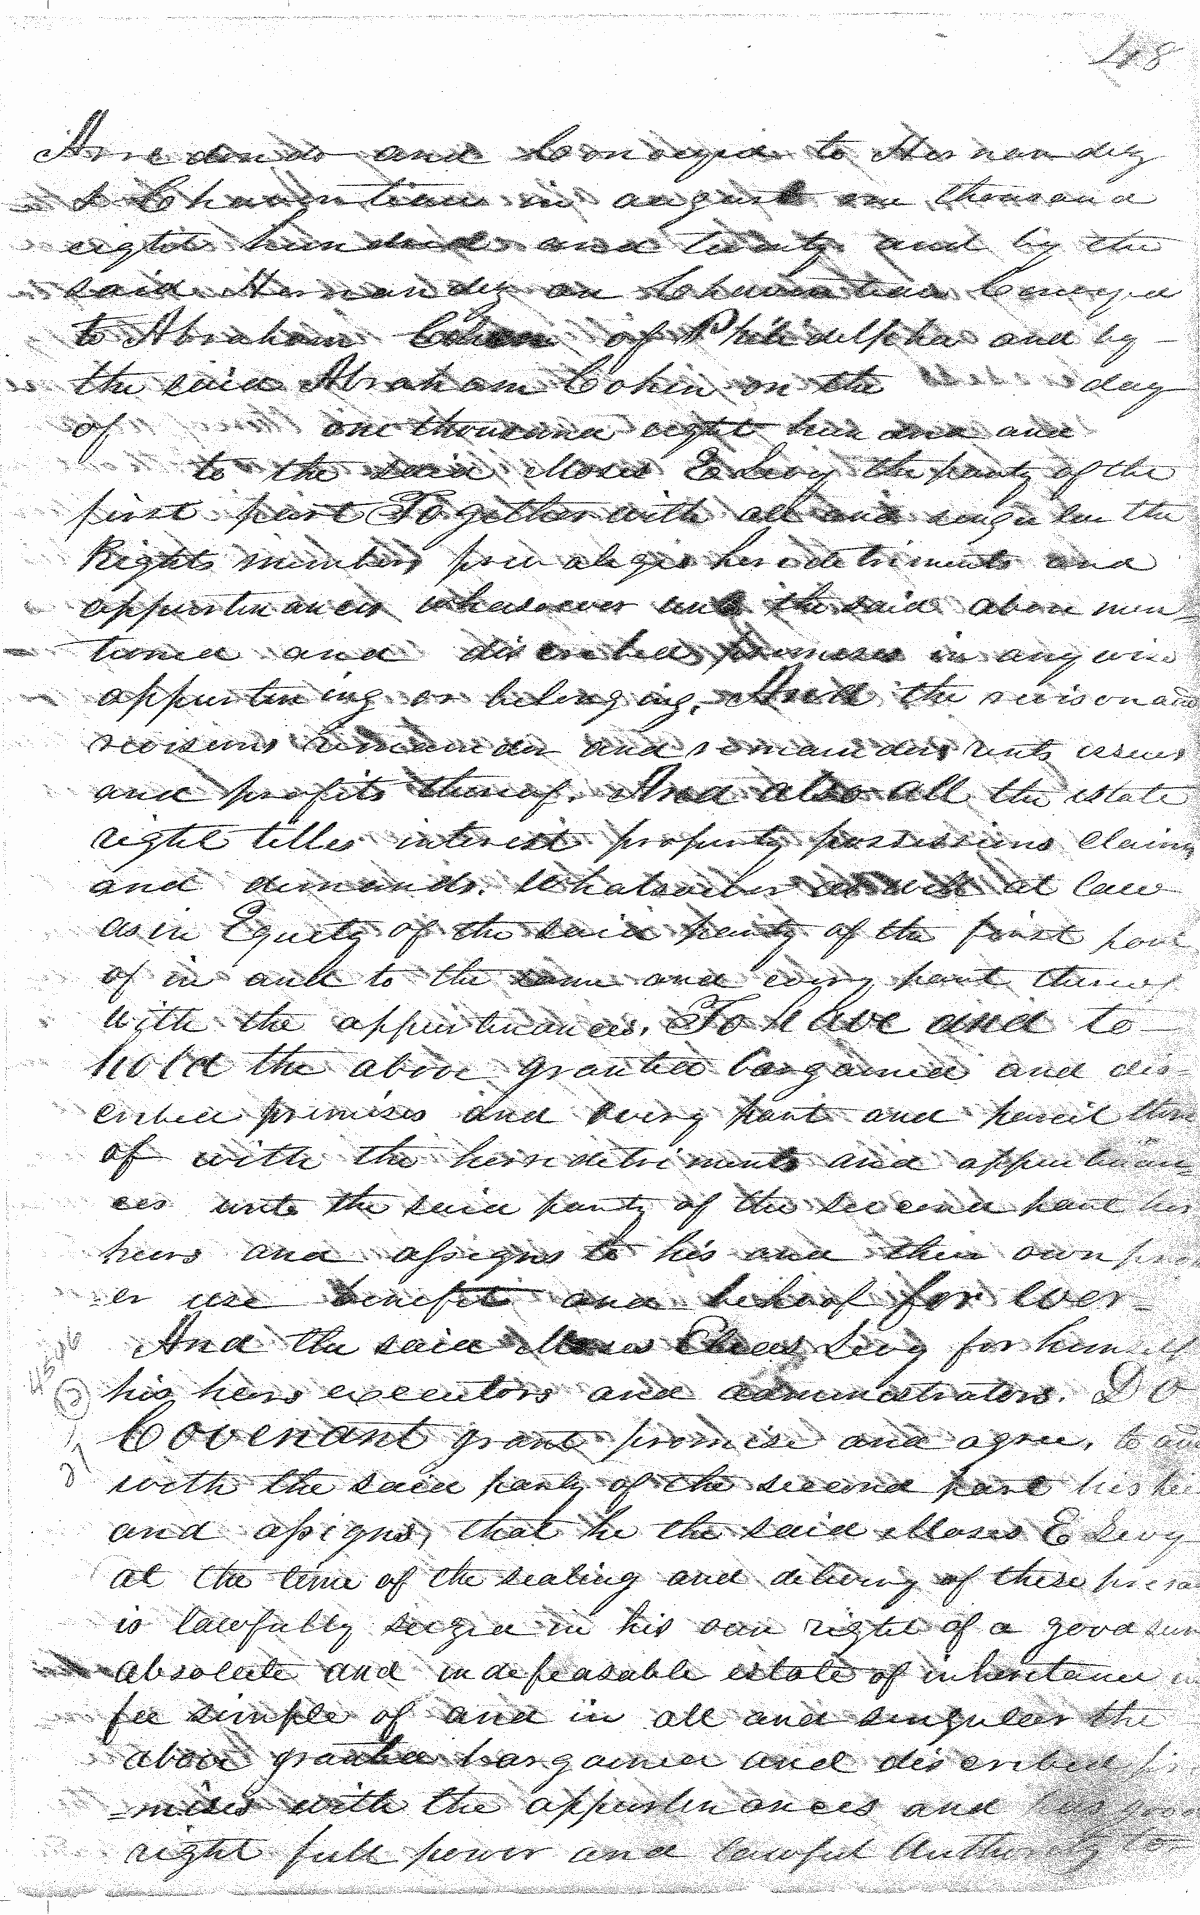 48
Arredondo and Conveyed to Hernandez
& Chauviteau in august one thousand
eight hundred and twenty and by the
said Hernandez an Chauviteau Conveyed
to Abraham Cohen of Philidelpha and by -
the said Abraham Cohen on the day
of one thousand eight hundred and
to the said Moses E Levy the party of the
first part Together with all and singular the
Rights members privaleges heriditriments and
appurtenances whasoever unto the said above men=
tioned and discribed premises in any wise
appurtening or belonging, And the revison and
revisions remainder and remainders rents issues
and profits thereof. And also all the estate
right titles interest property possessions claims
and demands. Whatsoever as well at law
as in Equity of the said party of the first part
of in and to the same and every part thereof
With the appurtenances. To have and to
hold the above granted bargained and dis=
cribed premises and every part and parcil there
of with the herriditriments and appurtenan=
ces unto the said party of the second part his
heirs and assigns to his and their own prop
er use benefit and behoof for Ever -
And the said Moses Elias Levy for himself
his heirs executors and administrators. Do
Covenant grant promise and agree, to and
with the said party of the second part his heirs
and assigns, that he the said Moses E Levy
at the time of the sealing and delivery of these
is lawfully seized in his own right of a good sure
absolute and indefeasable estate of inheritance in
fee simple of and in all and singular the
above granted bargained and discribed pre
=mises with the appurtenances and has good
right full power and lawful Authority to-
4546
27